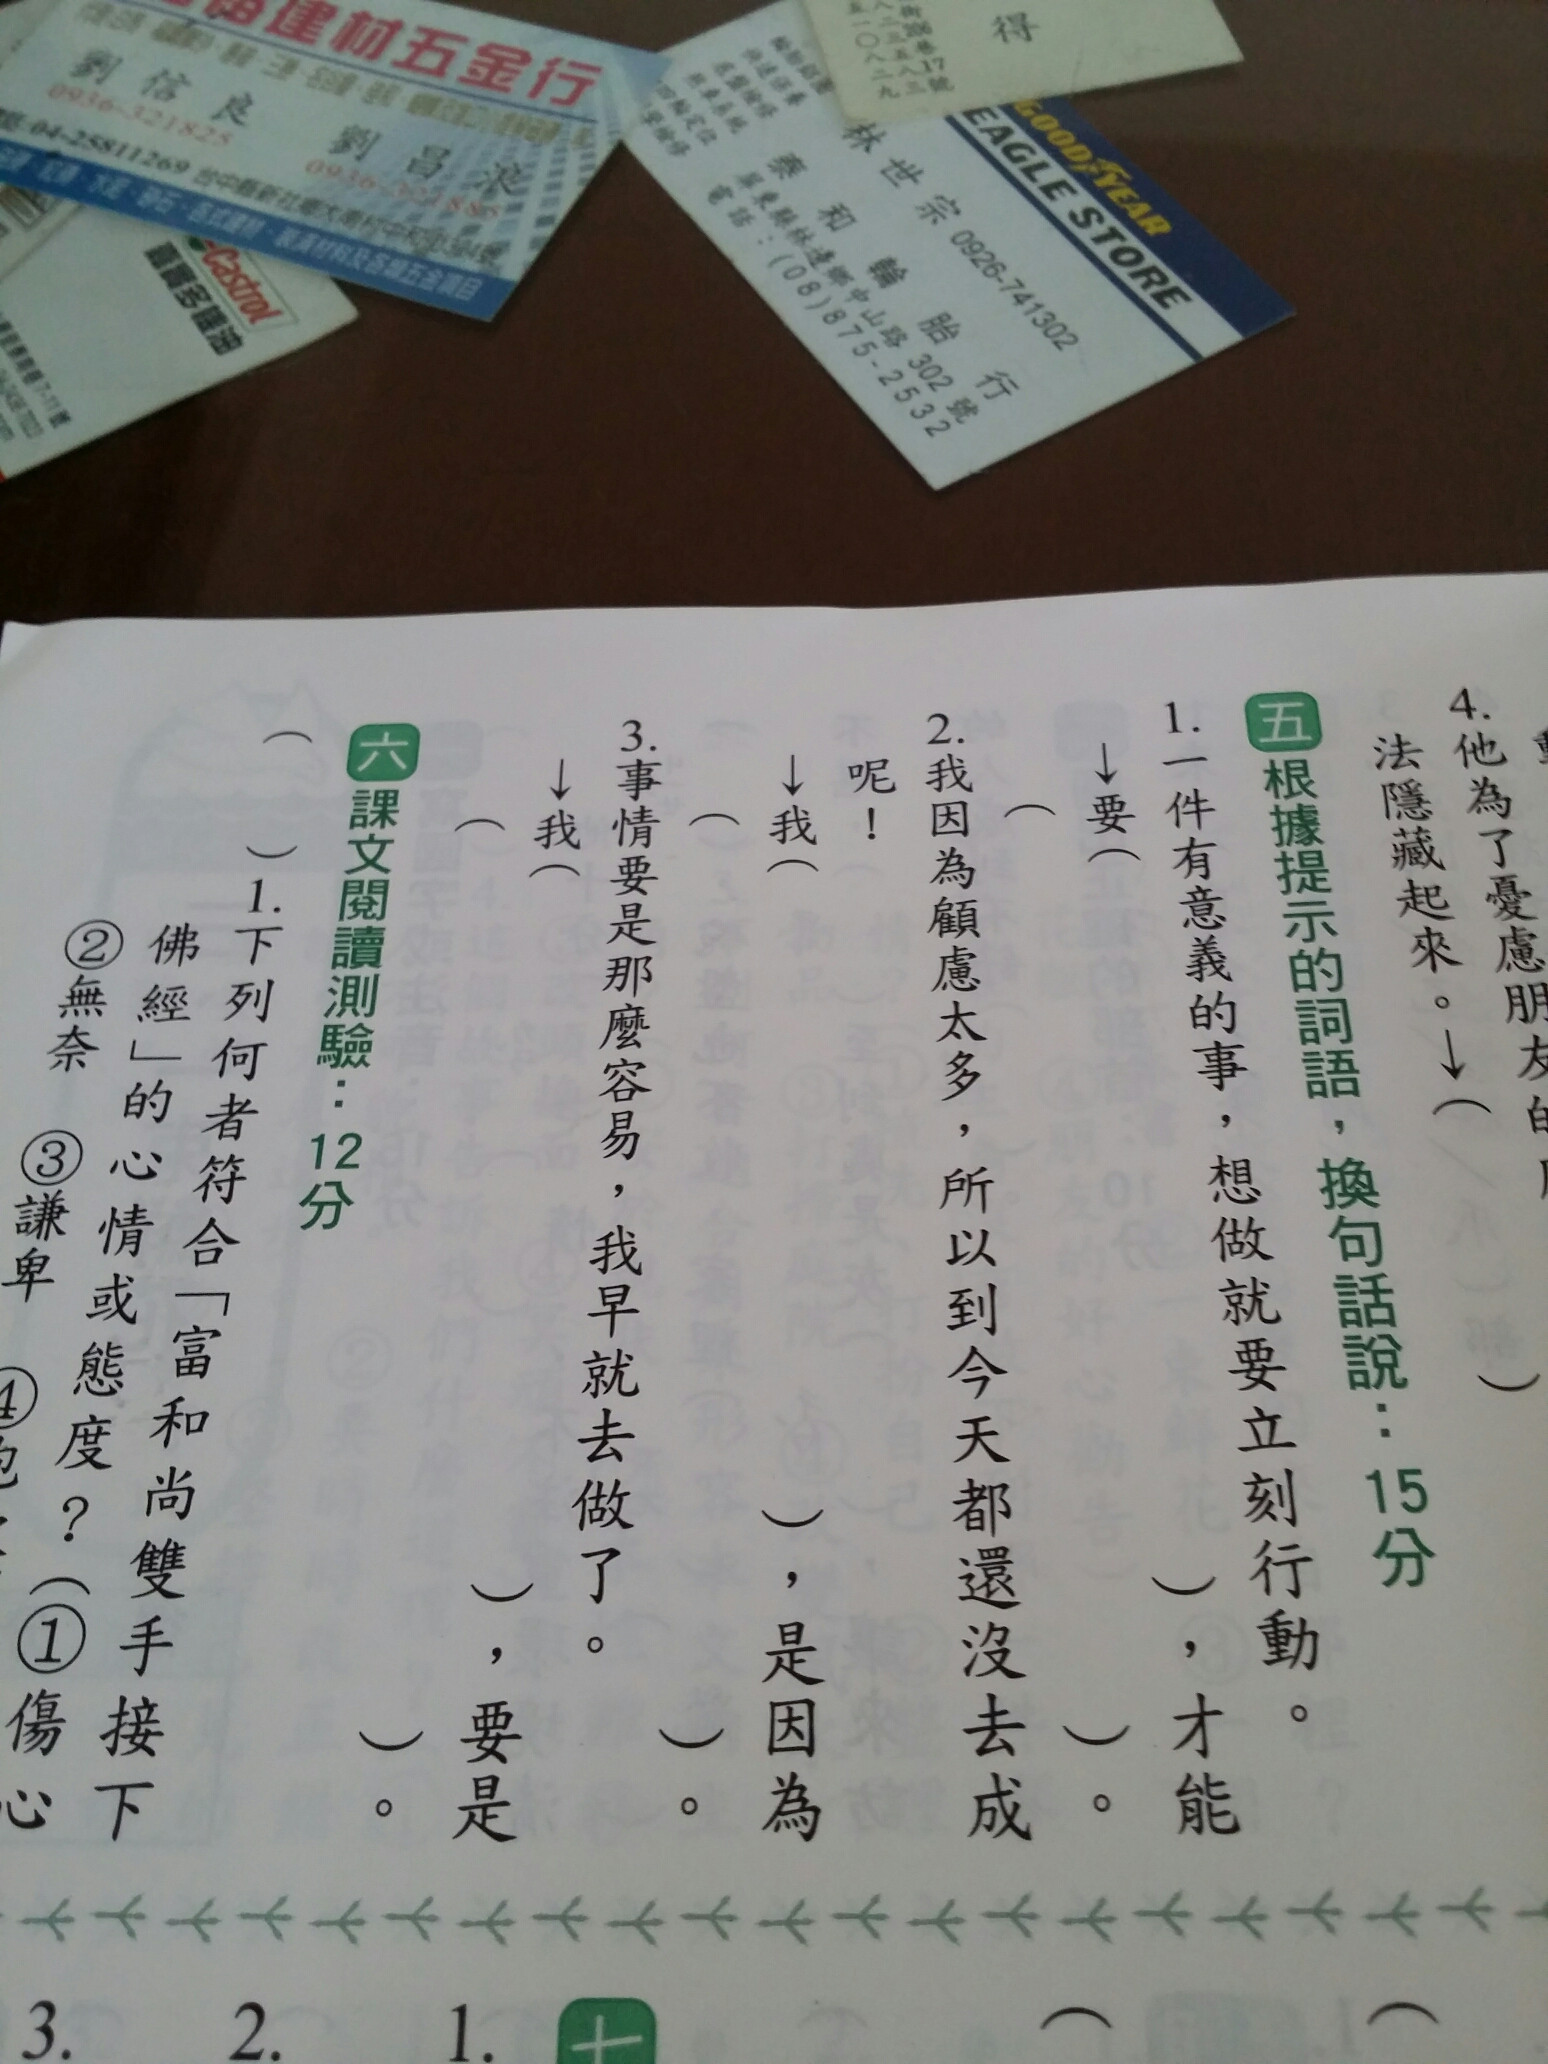 建材五金行
劉信良
0936-321825
劉昌浪
0936-321885
04-25811269
Castrol
嘉實多機油
GOODYEAR
EAGLE STORE
林世宗 0926-741302
泰和輪胎行
屏東縣林邊鄉中山路302號
電話：(08)875-2532
四輪定位
得
4.他為了憂慮朋友的
法隱藏起來。→（ ）
五 根據提示的詞語，換句話說：15分
1.一件有意義的事，想做就要立刻行動。
→要（ ），才能
（ ）。
2.我因為顧慮太多，所以到今天都還沒去成
呢！
→我（ ），是因為
（ ）。
3.事情要是那麼容易，我早就去做了。
→我（ ），要是
（ ）。
六 課文閱讀測驗：12分
（ ）1.下列何者符合「富和尚雙手接下
佛經」的心情或態度？（①傷心
②無奈 ③謙卑 ④
十
1.
2.
3.